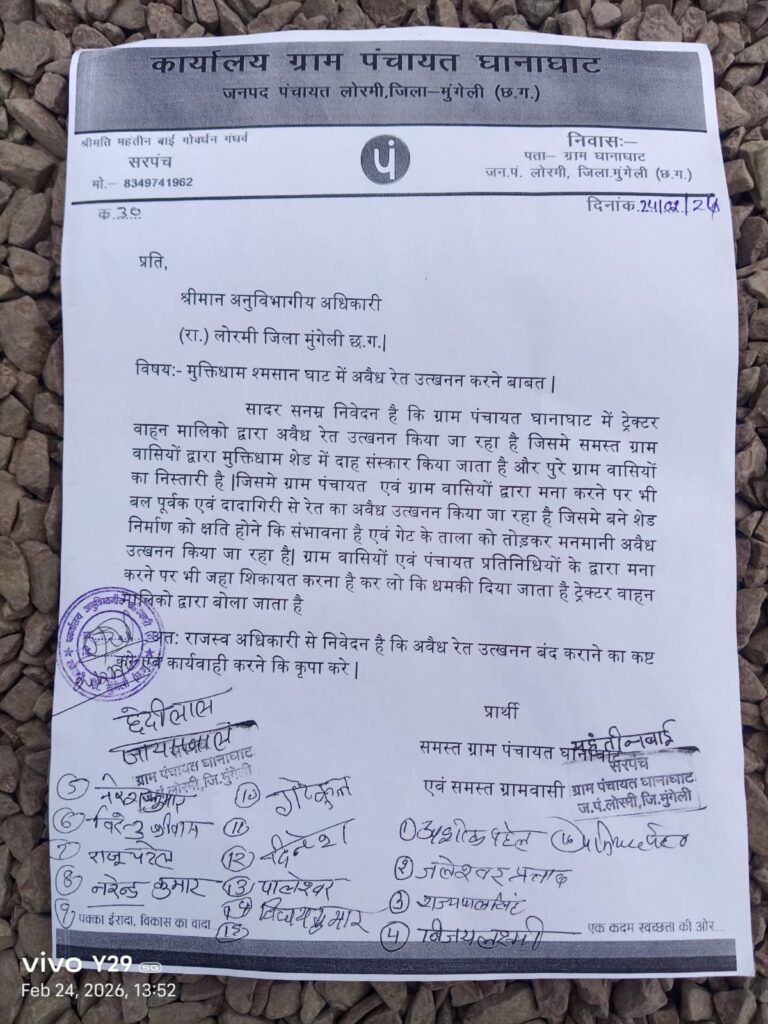 कार्यालय ग्राम पंचायत घानाघाट
जनपद पंचायत लोरमी,जिला–मुंगेली (छ.ग.)
श्रीमति महंतीन बाई गोवर्धन गंधर्व
सरपंच
मो.– 8349741962
पं
निवासः–
पता– ग्राम घानाघाट
जन.पं. लोरमी, जिला.मुंगेली (छ.ग.)
क.30
दिनांक.24/02/26
प्रति,
श्रीमान अनुविभागीय अधिकारी
(रा.) लोरमी जिला मुंगेली छ.ग.|
विषय:- मुक्तिधाम श्मसान घाट में अवैध रेत उत्खनन करने बाबत |
सादर सनम्र निवेदन है कि ग्राम पंचायत घानाघाट में ट्रेक्टर
वाहन मालिको द्वारा अवैध रेत उत्खनन किया जा रहा है जिसमे समस्त ग्राम
वासियों द्वारा मुक्तिधाम शेड में दाह संस्कार किया जाता है और पुरे ग्राम वासियों
का निस्तारी है |जिसमे ग्राम पंचायत एवं ग्राम वासियों द्वारा मना करने पर भी
बल पूर्वक एवं दादागिरी से रेत का अवैध उत्खनन किया जा रहा है जिसमे बने शेड
निर्माण को क्षति होने कि संभावना है एवं गेट के ताला को तोड़कर मनमानी अवैध
उत्खनन किया जा रहा है| ग्राम वासियों एवं पंचायत प्रतिनिधियों के द्वारा मना
करने पर भी जहा शिकायत करना है कर लो कि धमकी दिया जाता है ट्रेक्टर वाहन
मालिको द्वारा बोला जाता है
अत: राजस्व अधिकारी से निवेदन है कि अवैध रेत उत्खनन बंद कराने का कष्ट
करे एवं कार्यवाही करने कि कृपा करे |
प्रार्थी
समस्त ग्राम पंचायत घानाघाट
एवं समस्त ग्रामवासी
महंतीनबाई
सरपंच
ग्राम पंचायत घानाघाट
ज.पं.लोरमी,जि.मुंगेली
छेदीलाल
जायसवाल
ग्राम पंचायत घानाघाट
ज.पं.लोरमी, जि.मुंगेली
① अशोक पटेल
② जलेश्वर प्रसाद
③
④ विजयलक्ष्मी
⑤ नरेश कुमार
⑥
⑦ राजू पटेल
⑧ नरेन्द्र कुमार
⑨
⑩ गोकुल
⑪
⑫ दिनेश
⑬ पालेश्वर
⑭ विजय कुमार
⑮
⑯
पक्का ईरादा, विकास का वादा
एक कदम स्वच्छता की ओर...
vivo Y29 5G
Feb 24, 2026, 13:52